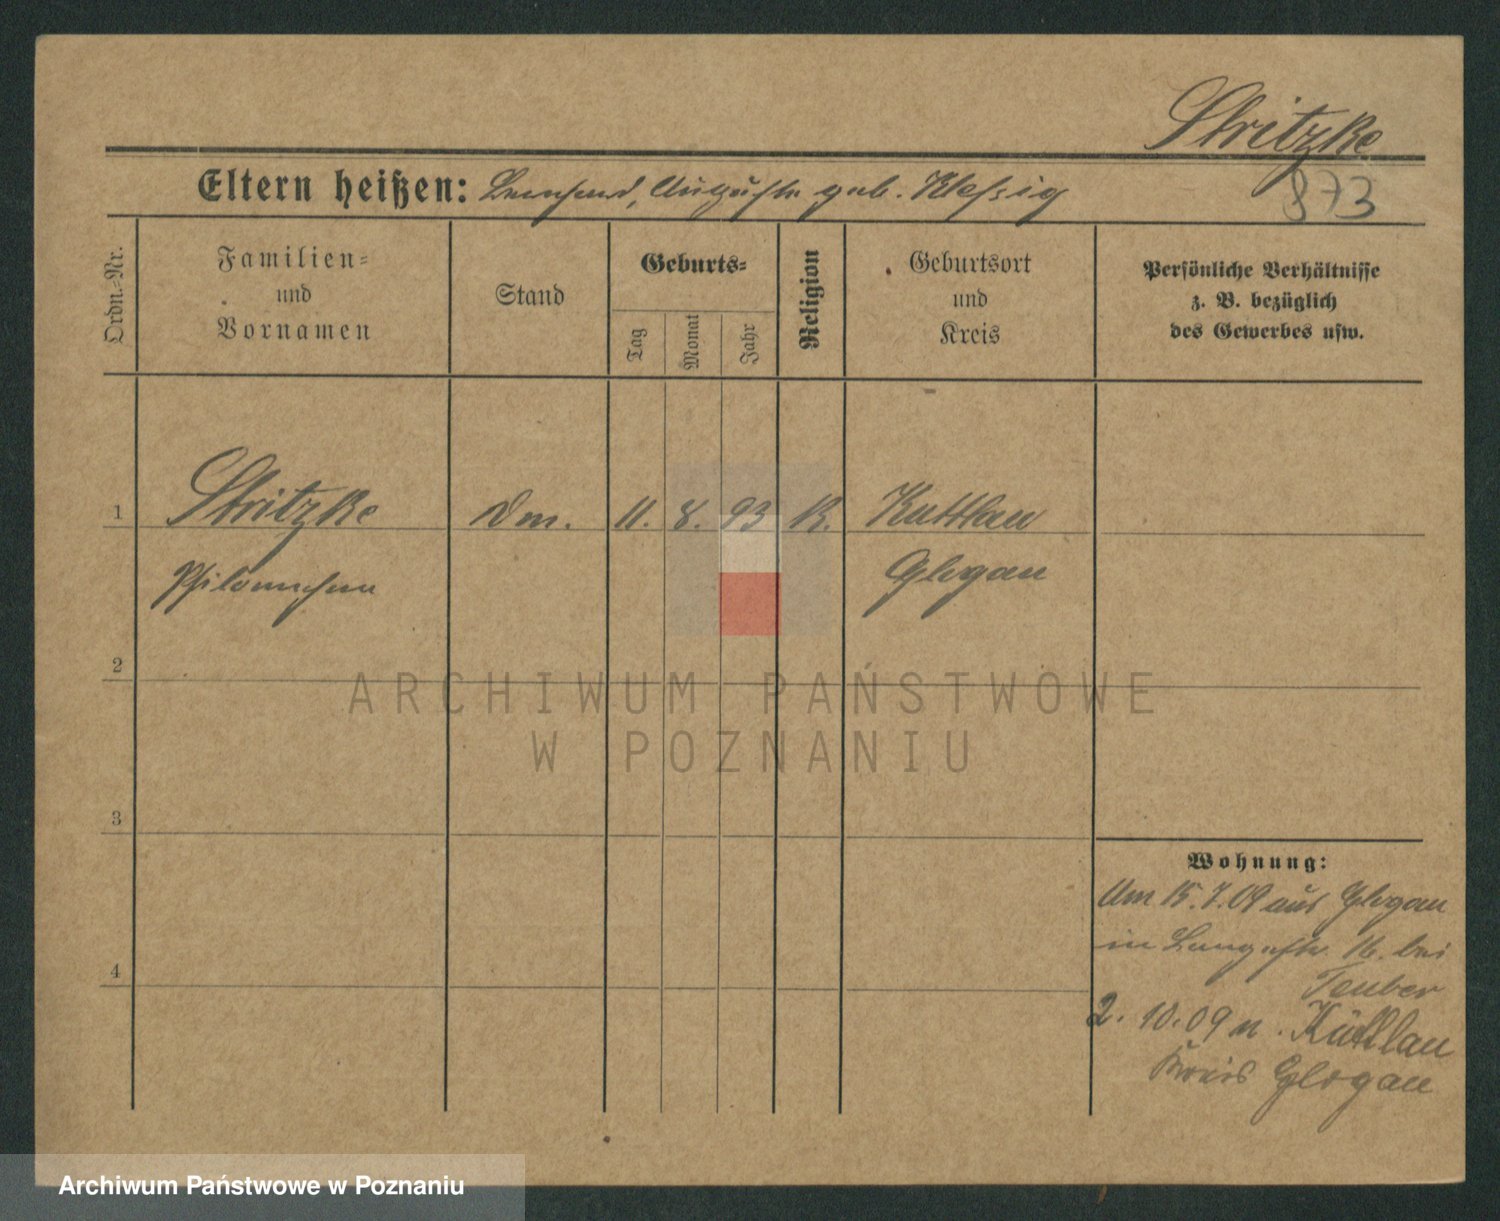 Stritzke
873
Eltern heißen: Bernhard, Auguste geb. Klessig
Ordn.-Nr.
Familien-
und
Vornamen
Stand
Geburts-
Tag
Monat
Jahr
Religion
Geburtsort
und
Kreis
Persönliche Verhältnisse
z. B. bezüglich
des Gewerbes usw.
1
Stritzke
Dm.
11.
8.
93
K.
Kuttlau
Glogau
2
ARCHIWUM PAŃSTWOWE
W POZNANIU
3
Wohnung:
Um 15.7.09 aus Glogau
in Langestr. 16. bei
Teuber
4
2. 10.09 n. Kuttlau
Kreis Glogau
Archiwum Państwowe w Poznaniu